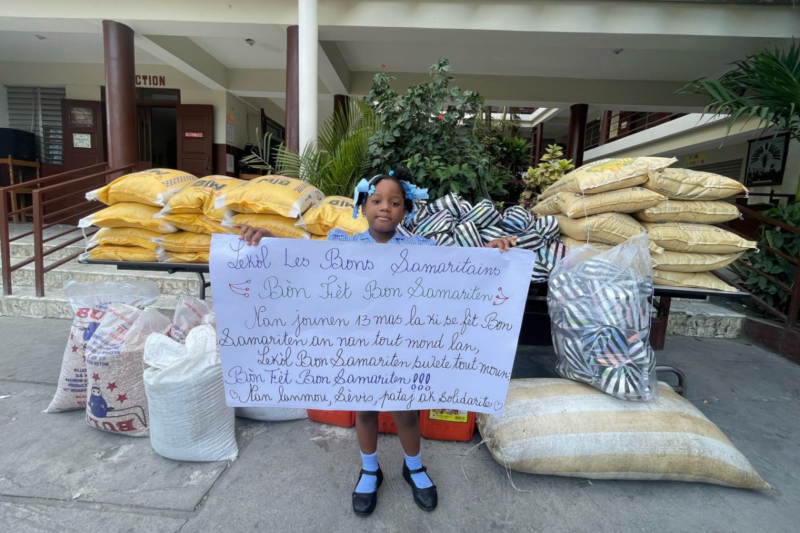 CTION
Lekòl Les Bons Samaritains
Bòn Fèt Bon Samariten
Nan jounen 13 mas la ki se fèt Bon
Samariten an nan tout mond lan,
Lekòl Bon Samariten swete tout moun
Bòn Fèt Bon Samariten!!!
Nan lanmou, Sèvis, pataj ak Solidarite